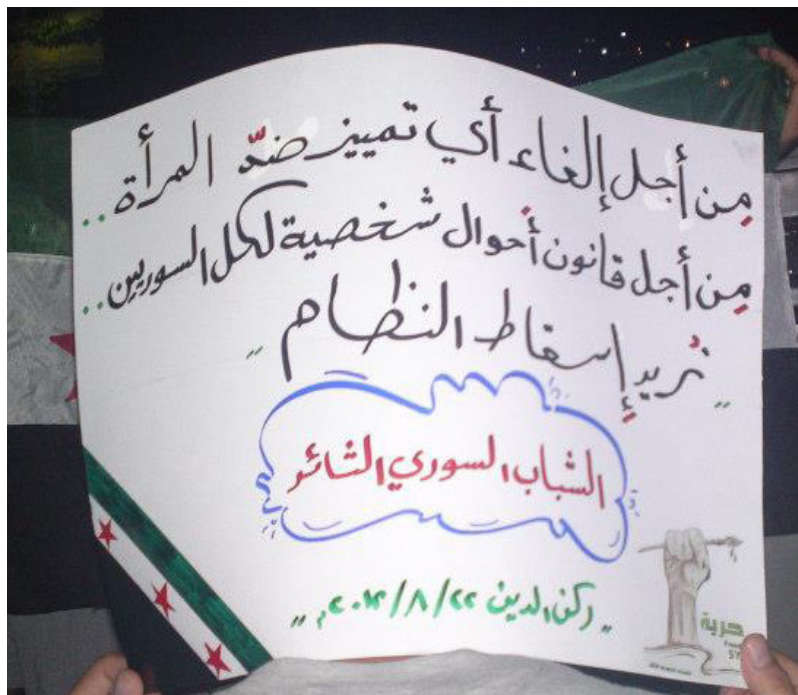 مِن أجل إلغاء أي تمييز ضدّ المرأة..
مِن أجل قانون أحوال شخصية لكل السوريين..
" نُريد إسقاط النظام "
الشباب السوري الثائر
" ركن الدين ٢٢/٨/٢٠١٢م "
حرية